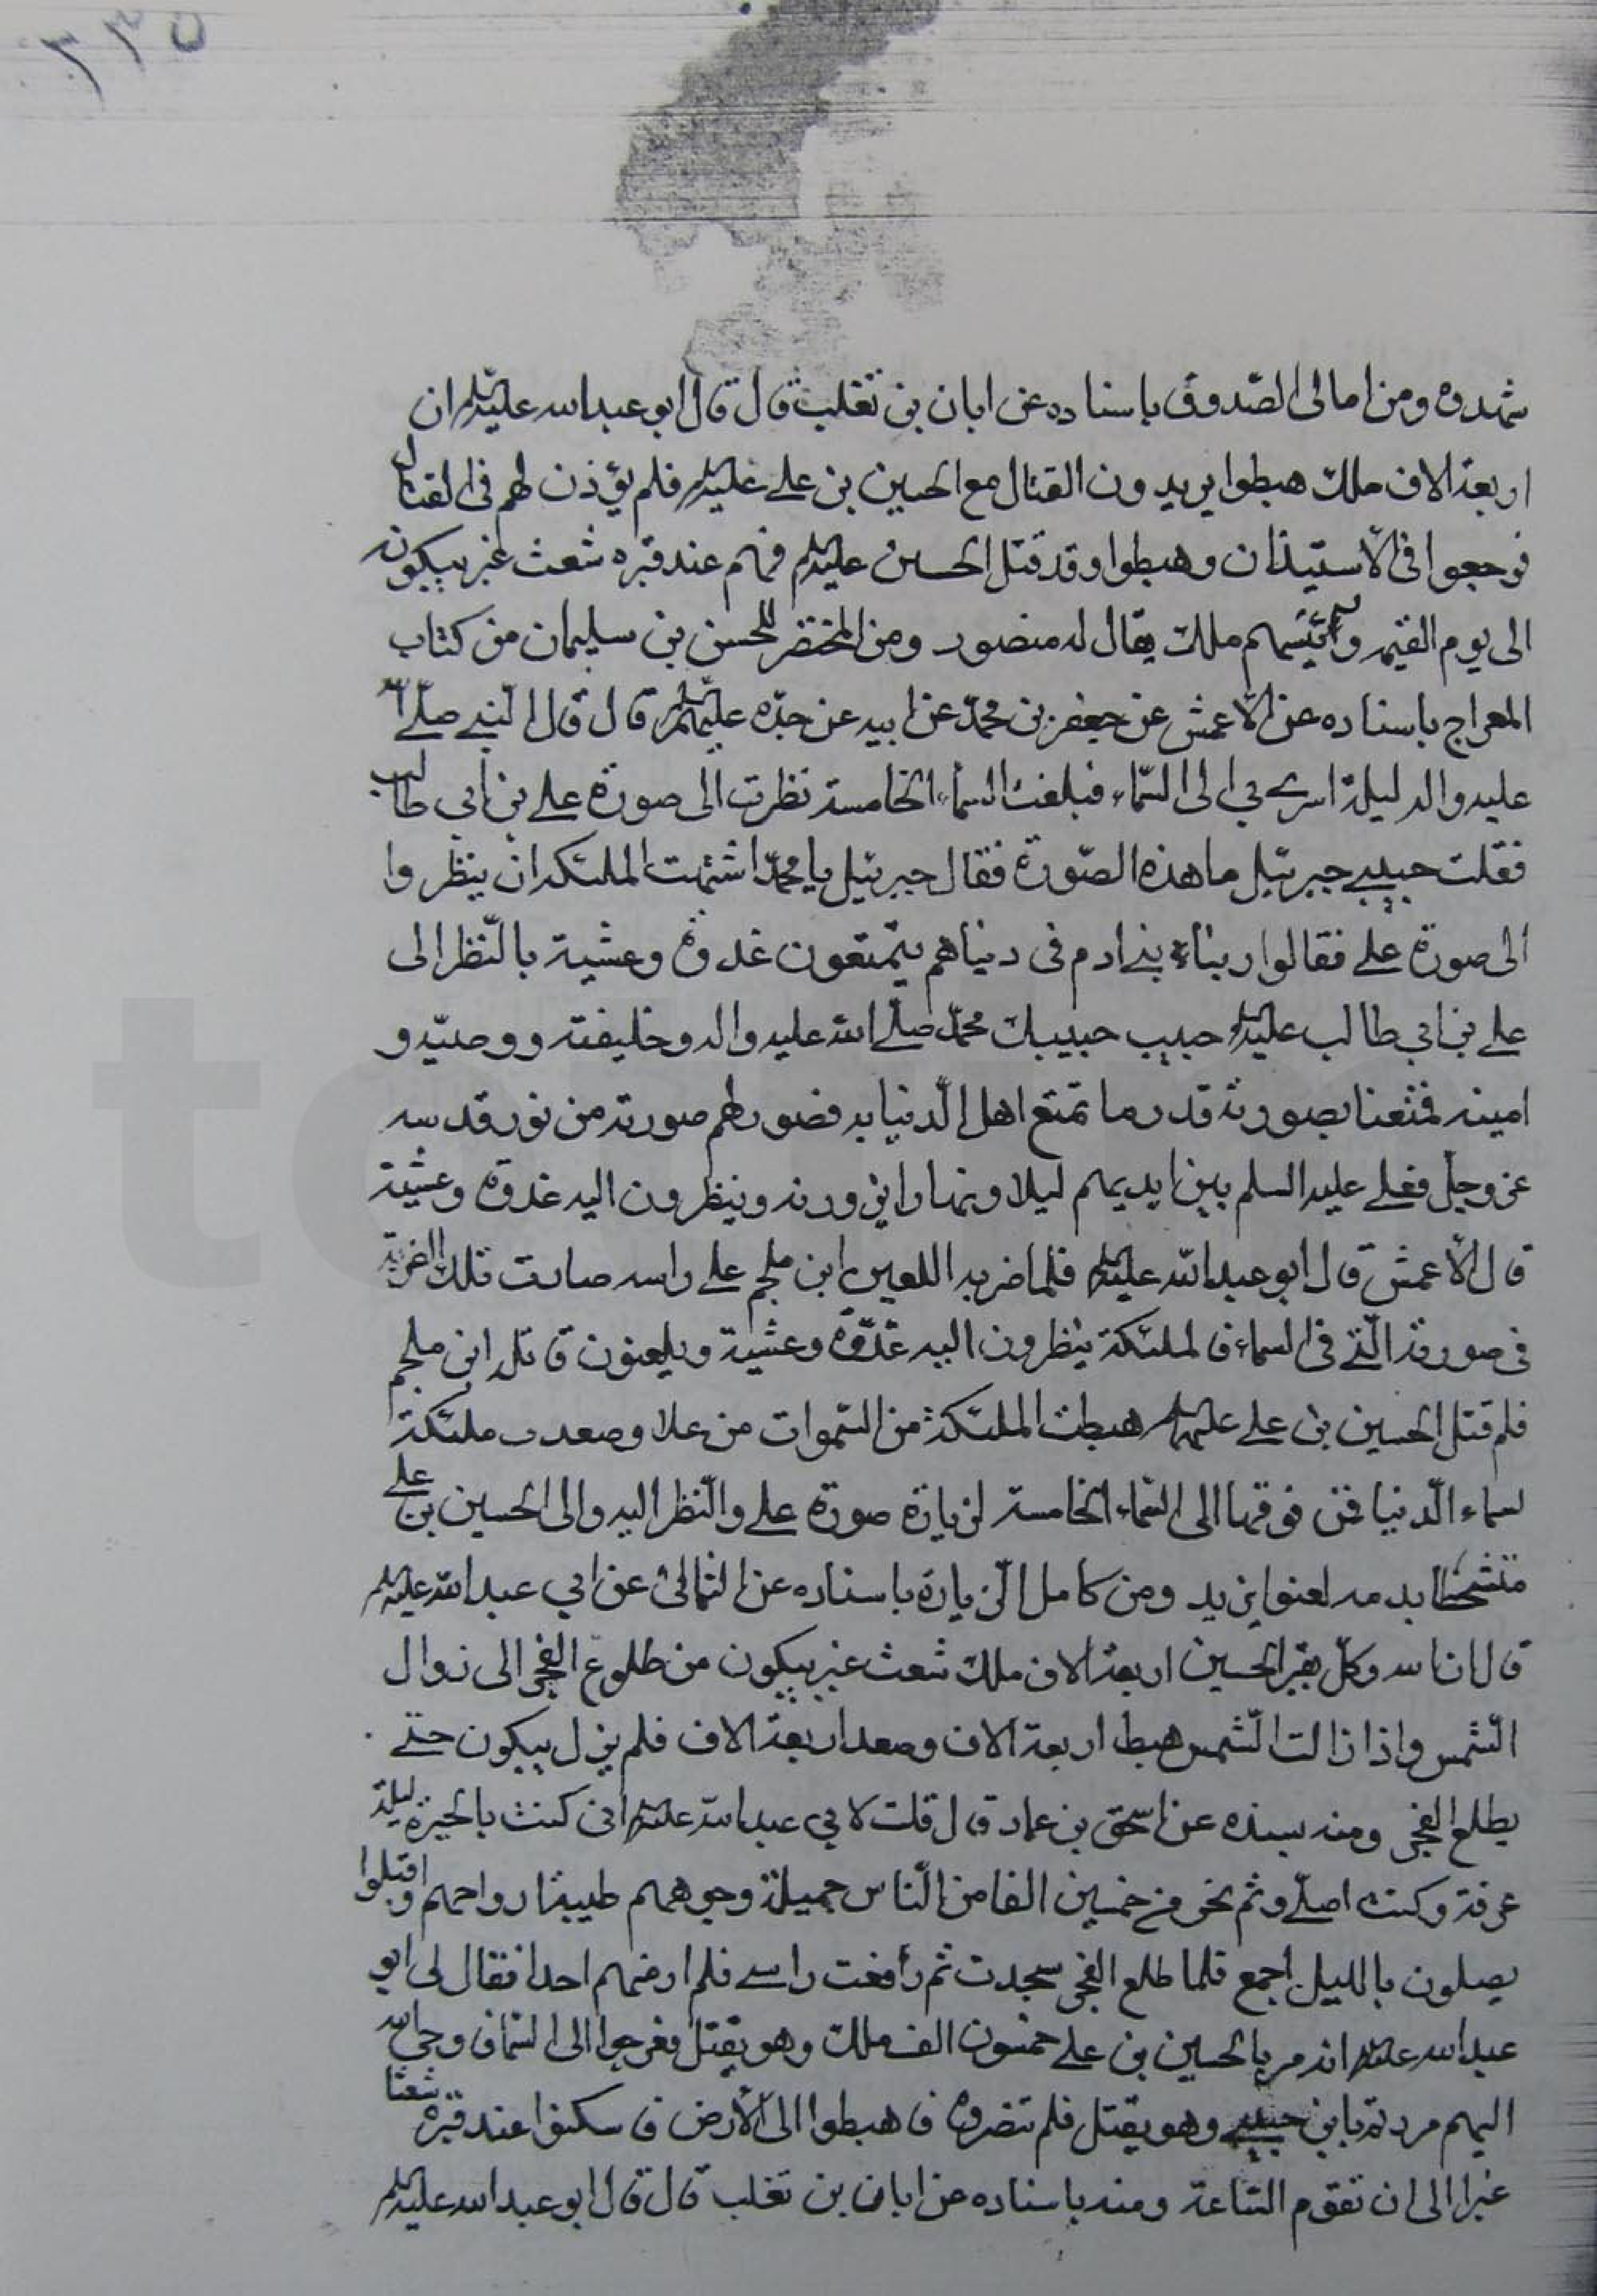 ٣٣٥
شهده ومن امالى الصّدوق باسناده عن ابان بن تغلب قال قال ابو عبدالله عليه السلم ان
اربعة الاف ملك هبطوا يريدون القتال مع الحسين بن على عليه السلم فلم يؤذن لهم فى القتال
فرجعوا فى الاستيذان وهبطوا وقد قتل الحسين عليه السلم فهم عند قبره شعث غبر يبكونه
الى يوم القيمة ورئيسهم ملك يقال له منصور ومن المختضر للحسن بن سليمان من كتاب
المعراج باسناده عن الأعمش عن جعفر بن محمّد عن ابيه عن جدّه عليهم السلم قال قال النبى صلى الله
عليه واله ليلة اسرى بي الى السّماء فبلغت السماء الخامسة نظرت الى صورة على بن أبي طالب
فقلت حبيبي جبرئيل ما هذه الصّورة فقال جبرئيل يا محمّد اشتهت الملئكة ان ينظروا
الى صورة على فقالوا ربنا بنى ادم فى دنياهم يتمتعون غدوة وعشية بالنّظر الى
على بن ابي طالب عليه السلم حبيب حبيبك محمّد صلى الله عليه واله وخليفته ووصيّه و
امينه فمتعنا بصورته قدر ما تمتع اهل الدّنيا به فصور لهم صورته من نور قدسه
عز وجل فعلى عليه السلم بين ايديهم ليلا ونهارا يزورنه وينظرون اليه غدوة وعشية
قال الأعمش قال ابو عبدالله عليه السلم فلما ضربه اللعين ابن ملجم على راسه صارت تلك الضربة
فى صورته الّتى فى السماء فالملئكة ينظرون اليه غدوة وعشية ويلعنون قاتله ابن ملجم
فلم قتل الحسين بن على عليهما السلم هبطت الملئكة من السّموات من علا وصعدت ملئكة
سماء الدّنيا فمن فوقها الى السّماء الخامسة لزيارة صورة على والنّظر اليه والى الحسين بن على
متشحّطا بدمه لعنوا يزيد ومن كامل الزّيارة باسناده عن الثمالى عن ابي عبدالله عليه السلم
قال ان الله وكلّ بقبر الحسين اربعة الاف ملك شعث غبر يبكون من طلوع الفجر الى زوال
الشّمس واذا زالت الشّمس هبط اربعة الاف وصعد اربعة الاف فلم يزل يبكون حتّى
يطلع الفجر ومنه بسنده عن اسحق بن عمار قال قلت لابي عبدالله عليه السلم انى كنت بالحيرة ليلة
عرفة وكنت اصلّى وثم نحو من خمسين الفا من النّاس جميلة وجوههم طيبة ارواحهم واقبلوا
يصلون بالليل اجمع فلما طلع الفجر سجدت ثم رفعت راسى فلم ار منهم احدا فقال لى ابو
عبدالله عليه السلم انه مر بالحسين بن على خمسون الف ملك وهو يقتل فعرجوا الى السّما فاوحى الله
اليهم مررتم بابن حبيبي وهو يقتل فلم تنصروه فاهبطوا الى الأرض فاسكنوا عند قبره شعثا
غبرا الى ان تقوم السّاعة ومنه باسناده عن ابان بن تغلب قال قال ابو عبدالله عليه السلم